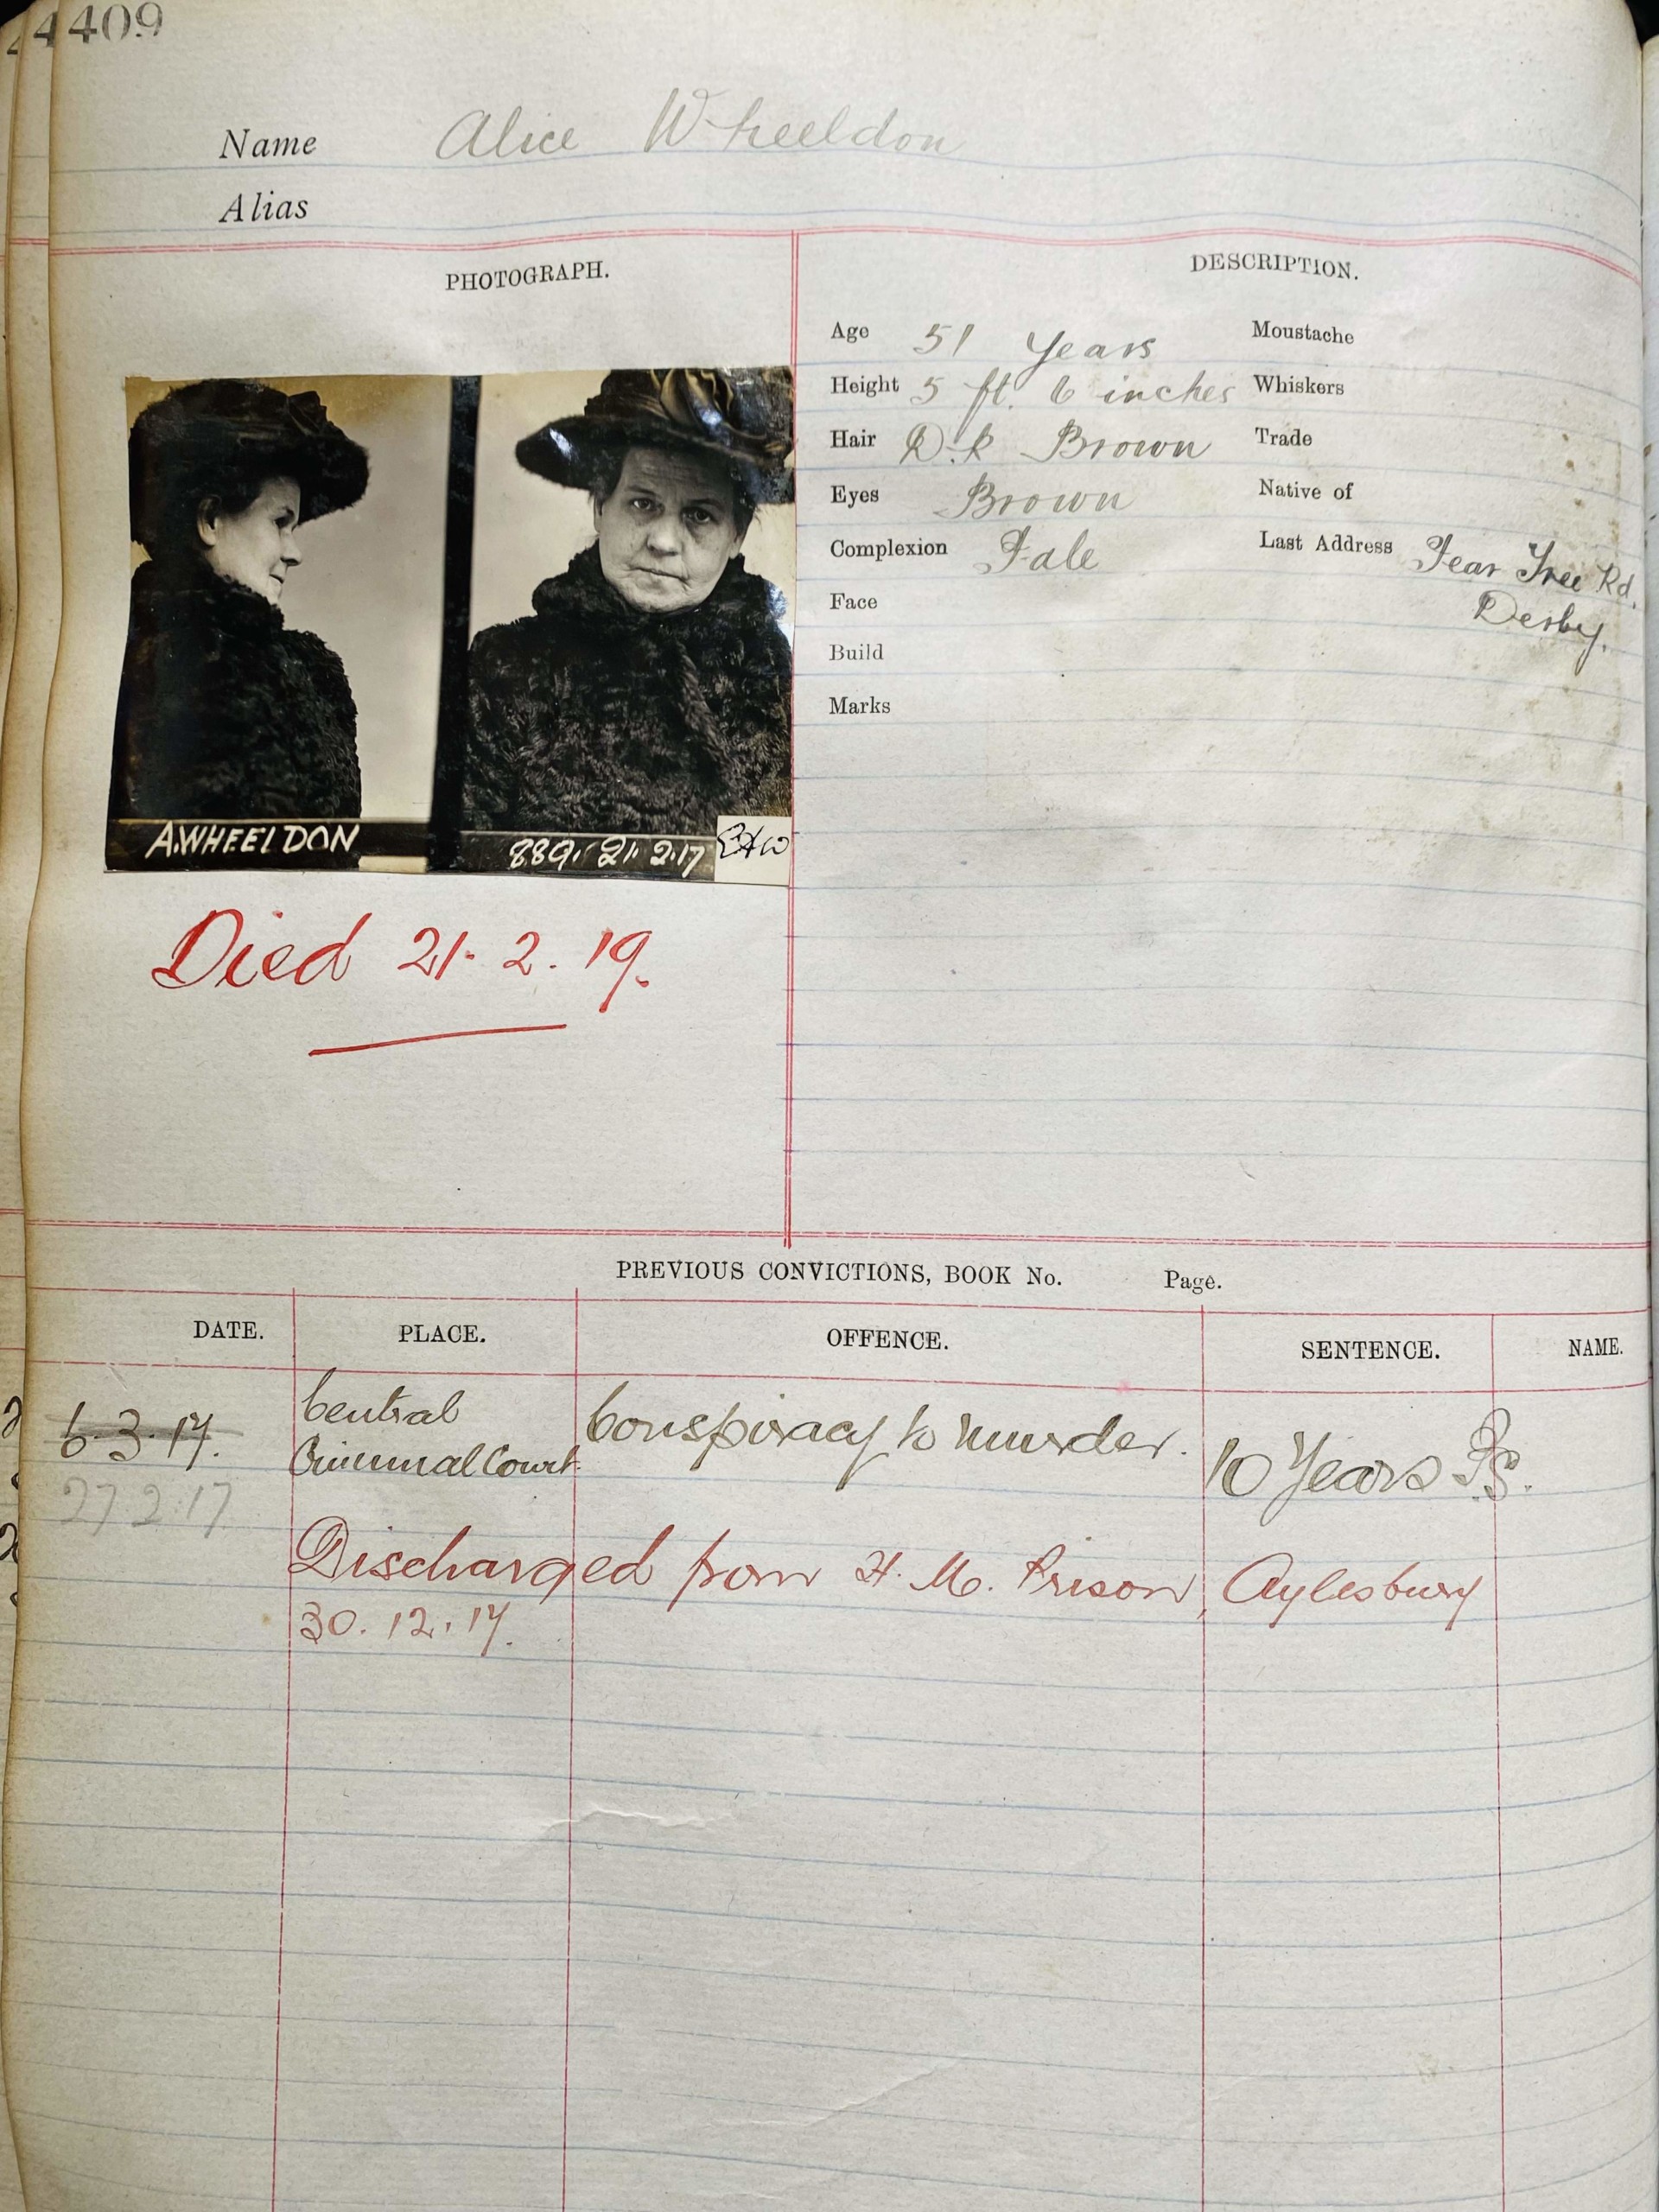 4409
Name Alice Wheeldon
Alias
PHOTOGRAPH.
A.WHEELDON
889. 21. 2.17
Died 21. 2. 19.
DESCRIPTION.
Age 51 Years
Height 5 ft. 6 inches
Hair D.k Brown
Eyes Brown
Complexion Pale
Face
Build
Marks
Moustache
Whiskers
Trade
Native of
Last Address Pear Tree Rd.
Derby.
PREVIOUS CONVICTIONS, BOOK No. Page.
DATE. PLACE. OFFENCE. SENTENCE. NAME.
6.3.17. Central Criminal Court. Conspiracy to Murder. 10 Years P.S.
27 2.17
Discharged from H. M. Prison, Aylesbury
30. 12. 17.